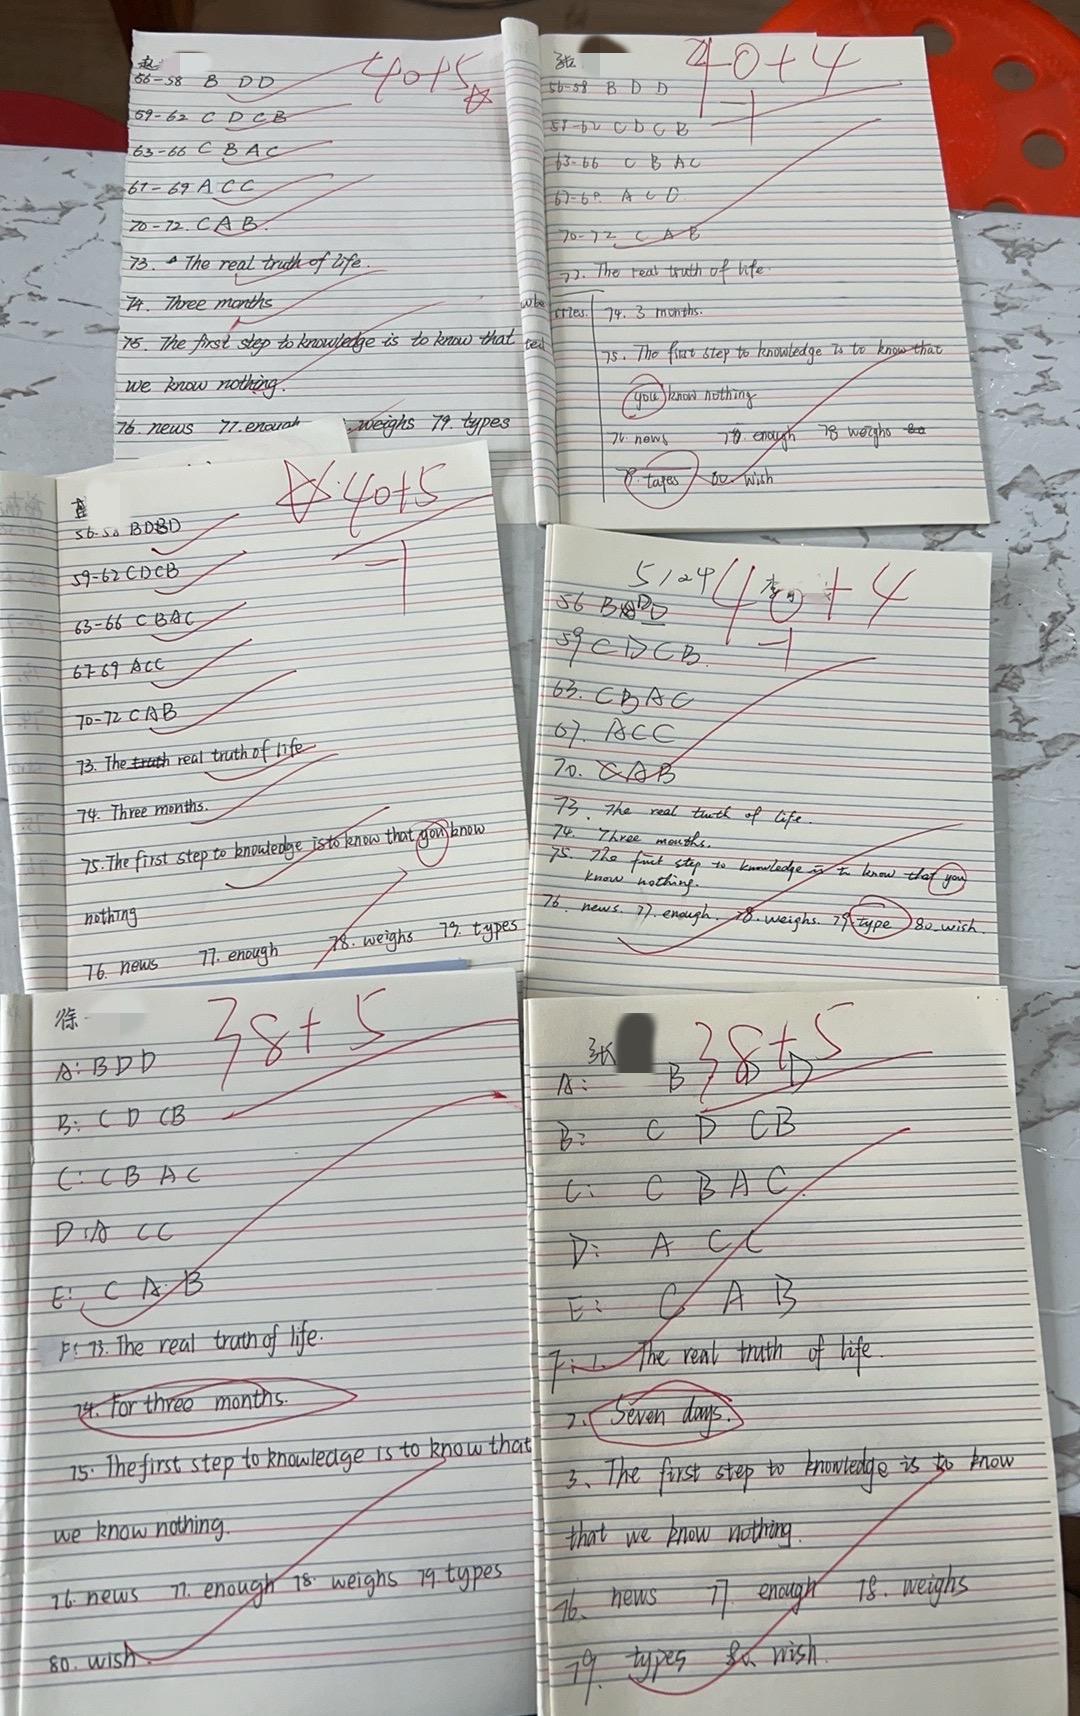 赵
40+5
56-58 B DD
59-62 C D C B
63-66 C B A C
67-69 A C C
70-72. C A B.
73. The real truth of life.
74. Three months
75. The first step to knowledge is to know that
we know nothing.
76. news 77. enough weighs 79. types
张
40+4
-1
56-58 B D D
59-62 C D C B
63-66 C B A C
67-69. A C C
70-72 C A B
73. The real truth of life.
74. 3 months.
75. The first step to knowledge is to know that
you know nothing
76. news 77. enough 78 weighs
79. tapes 80. wish
40+5
-1
BDBD
59-62 CDCB
63-66 CBAC
67-69 ACC
70-72 CAB
73. The truth real truth of life
74. Three months.
75. The first step to knowledge is to know that you know
nothing
76. news 77. enough 78. weighs 79. types
5/24
李
40+4
-1
56 B D D
59 C D C B.
63. C B A C
67. A C C
70. C A B
73. The real truth of life.
74. Three months.
75. The first step to knowledge is to know that you
know nothing.
76. news. 77. enough. 78. weighs. 79. type 80. wish.
徐
38+5
A: B D D
B: C D C B
C: C B A C
D: A C C
E: C A B
F: 73. The real truth of life.
74. For three months.
75. The first step to knowledge is to know that
we know nothing.
76. news 77. enough 78. weighs 79. types
80. wish.
张
38+5
A: B D D
B: C D C B
C: C B A C
D: A C C
E: C A B
F: 1. The real truth of life.
2. Seven days.
3. The first step to knowledge is to know
that we know nothing.
76. news 77 enough 78. weighs
79. types 80. wish.